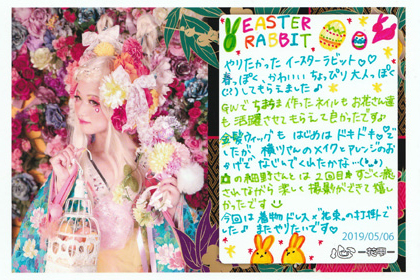 EASTER
RABBIT
やりたかった イースターラビット♡♡
春っぽく、かわいい ちょっぴり 大人っぽく
(?)してもらえました♪
GWで ちまちま作ったネイルも お花さん達
も 活躍させてもらえて良かったです♪
金髪ウィッグも はじめは ドキドキ♡で
したが、横リさんのメイクとアレンジのお
かげで なじんでくれたかな…
の細野さんとは 2回目 すごく癒
されながら 楽しく 撮影ができて 嬉し
かったです
今回は着物ドレス×"花魁"の打掛で
した♪ またやりたいです
2019/05/06
心 一花雫一